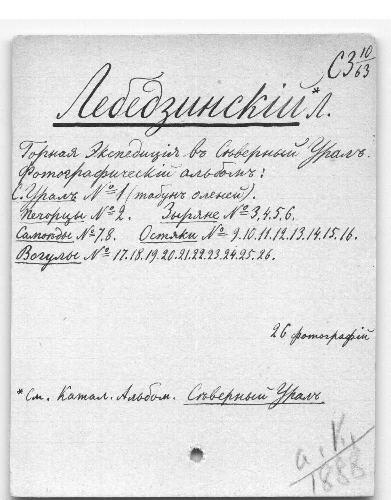 СЗ 10/63
Лебедзинскій* Л.
Горная Экспедиція въ Сѣверный Уралъ.
Фотографическій альбомъ:
С. Уралъ №1 (табунъ оленей).
Печорцы №2. Зыряне №3,4,5,6.
Самоѣды №7,8. Остяки №9.10.11.12.13.14.15.16.
Вогулы №17.18.19.20.21.22.23.24.25.26.
26 фотографій
*См. Катал. Альбом. Сѣверный Уралъ.
а. К.
1888